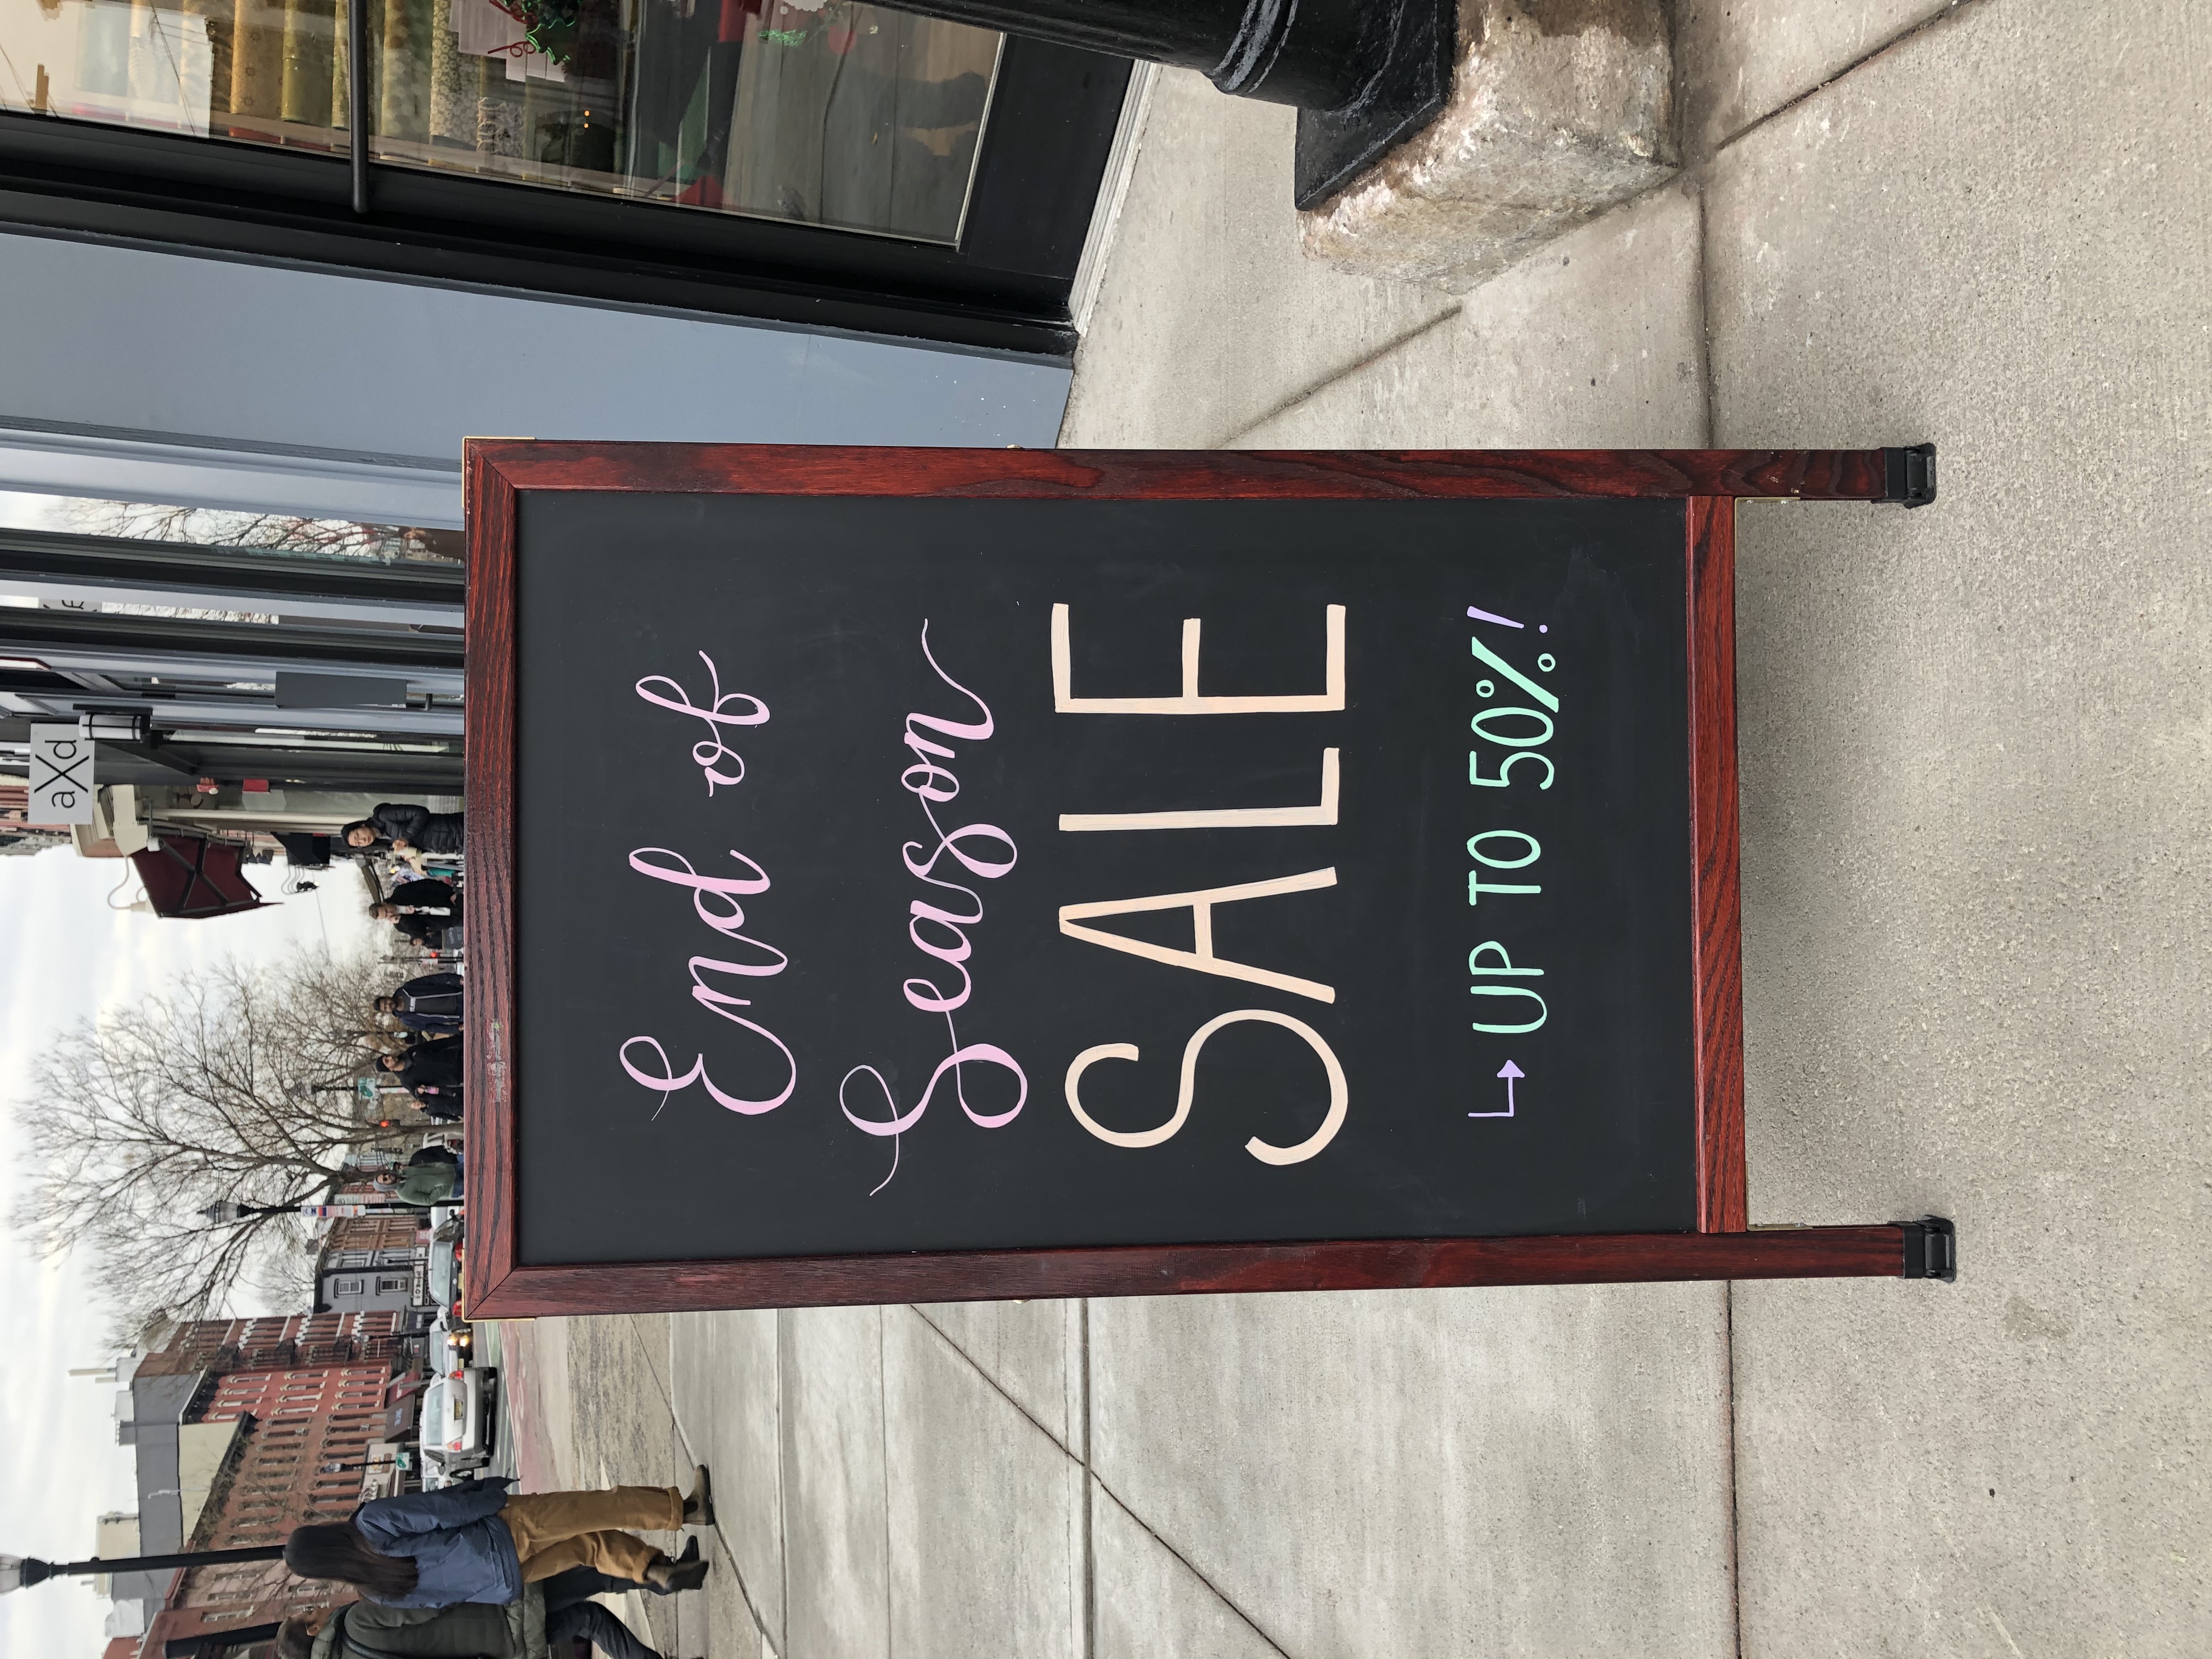 aXd
End of
Season
SALE
↳ UP TO 50%!